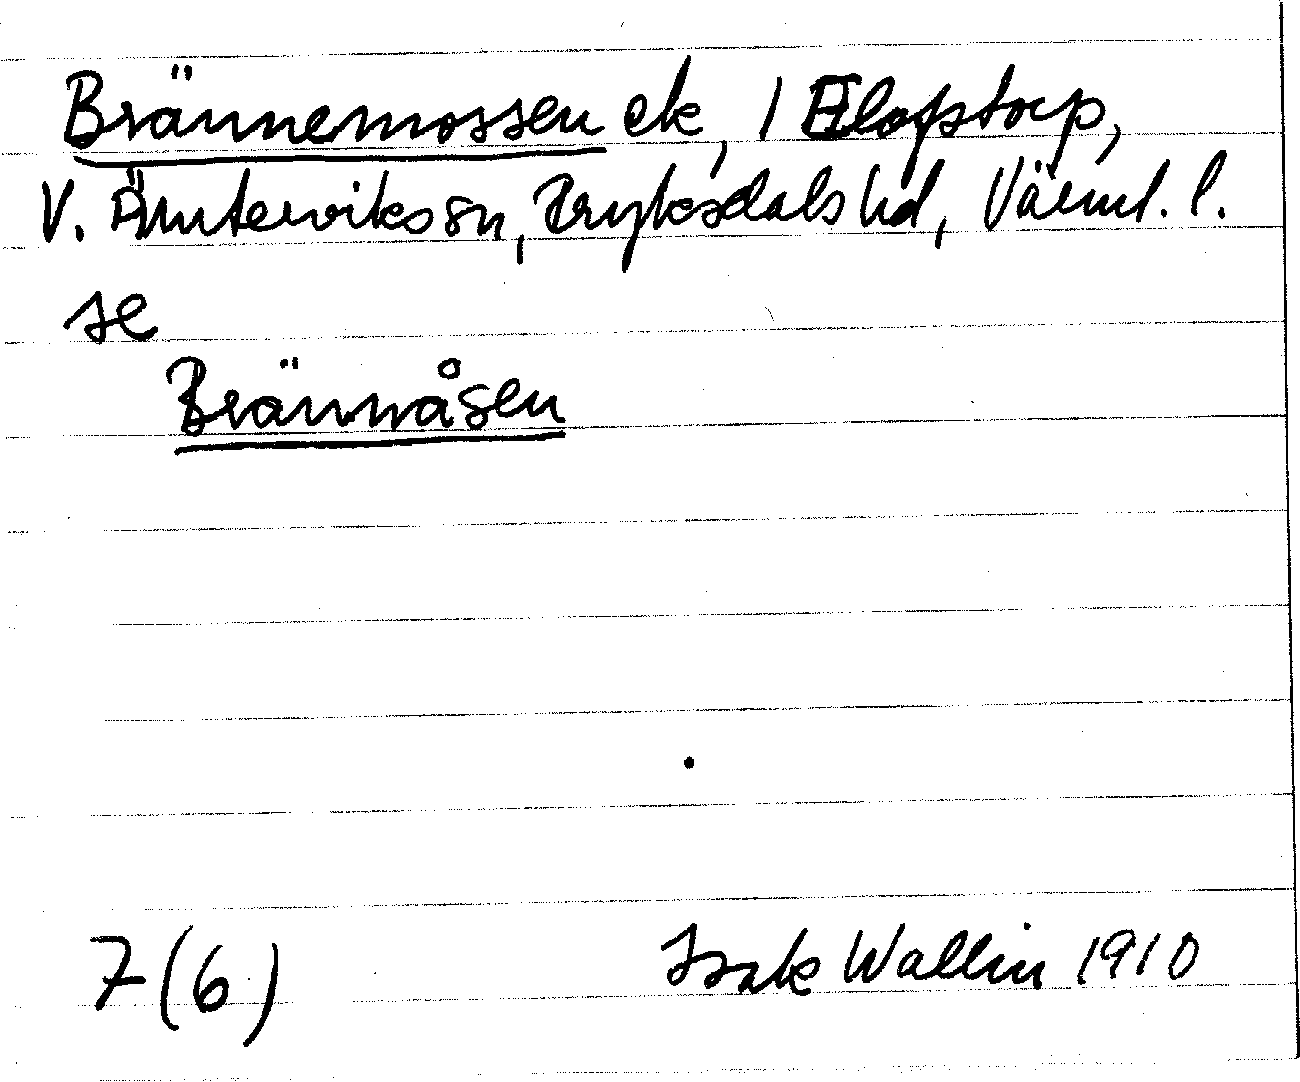 Brännemossen ek, 1 Elofstorp,
V. Ämterviks sn, Fryksdals hd, Värml. l.
se
Brännåsen
7 (6) Isak Wallin 1910